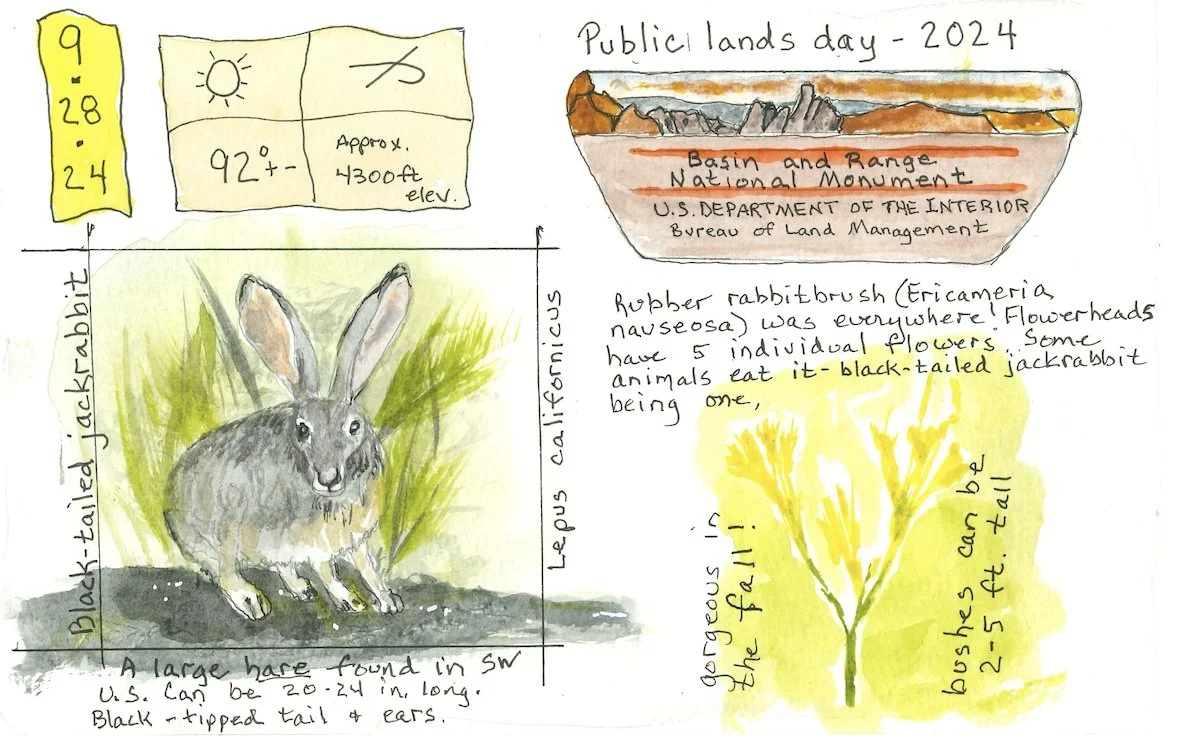 9
28
24
92° +-
Approx.
4300ft
elev.
Public lands day - 2024
Basin and Range
National Monument
U.S. DEPARTMENT OF THE INTERIOR
Bureau of Land Management
Black-tailed jackrabbit
Lepus californicus
A large hare found in SW
U.S. Can be 20-24 in. long.
Black-tipped tail & ears.
Rubber rabbitbrush (Ericameria
nauseosa) was everywhere! Flowerheads
have 5 individual flowers. Some
animals eat it - black-tailed jackrabbit
being one,
gorgeous in
the fall!
bushes can be
2-5 ft. tall